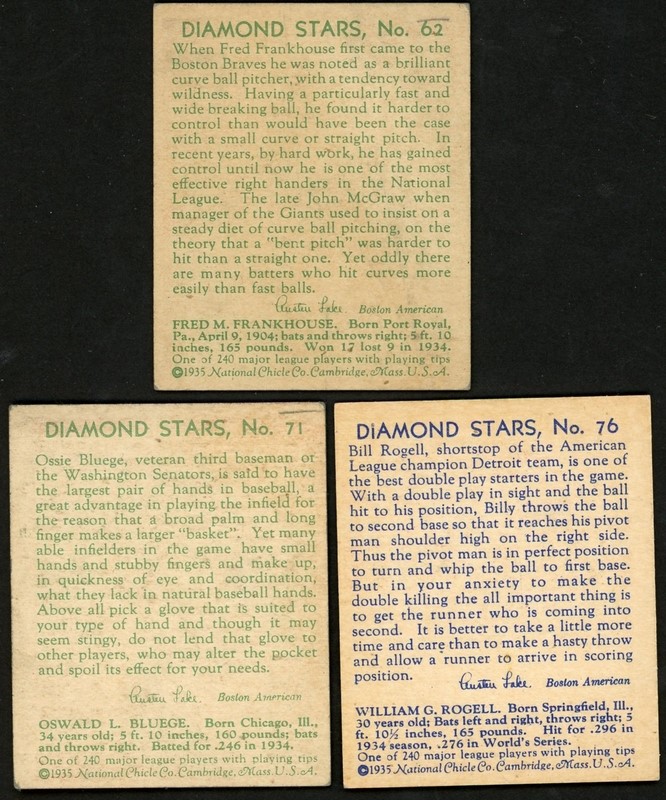 DIAMOND STARS, No. 62
When Fred Frankhouse first came to the
Boston Braves he was noted as a brilliant
curve ball pitcher, with a tendency toward
wildness. Having a particularly fast and
wide breaking ball, he found it harder to
control than would have been the case
with a small curve or straight pitch. In
recent years, by hard work, he has gained
control until now he is one of the most
effective right handers in the National
League. The late John McGraw when
manager of the Giants used to insist on a
steady diet of curve ball pitching, on
the theory that a "bent pitch" was harder to
hit than a straight one. Yet oddly there
are many batters who hit curves more
easily than fast balls.
Austen Lake Boston American
FRED M. FRANKHOUSE. Born Port Royal,
Pa., April 9, 1904; bats and throws right; 5 ft. 10
inches, 165 pounds. Won 17 lost 9 in 1934.
One of 240 major league players with playing tips
©1935 National Chicle Co. Cambridge, Mass. U.S.A.
DIAMOND STARS, No. 71
Ossie Bluege, veteran third baseman of
the Washington Senators, is said to have
the largest pair of hands in baseball, a
great advantage in playing the infield for
the reason that a broad palm and long
finger makes a larger "basket". Yet many
able infielders in the game have small
hands and stubby fingers and make up,
in quickness of eye and coordination,
what they lack in natural baseball hands.
Above all pick a glove that is suited to
your type of hand and though it may
seem stingy, do not lend that glove to
other players, who may alter the pocket
and spoil its effect for your needs.
Austen Lake Boston American
OSWALD L. BLUEGE. Born Chicago, Ill.,
34 years old; 5 ft. 10 inches, 160 pounds; bats
and throws right. Batted for .246 in 1934.
One of 240 major league players with playing tips
©1935 National Chicle Co. Cambridge, Mass. U.S.A.
DIAMOND STARS, No. 76
Bill Rogell, shortstop of the American
League champion Detroit team, is one of
the best double play starters in the game.
With a double play in sight and the ball
hit to his position, Billy throws the ball
to second base so that it reaches his pivot
man shoulder high on the right side.
Thus the pivot man is in perfect position
to turn and whip the ball to first base.
But in your anxiety to make the
double killing the all important thing is
to get the runner who is coming into
second. It is better to take a little more
time and care than to make a hasty throw
and allow a runner to arrive in scoring
position.
Austen Lake Boston American
WILLIAM G. ROGELL. Born Springfield, Ill.,
30 years old; Bats left and right, throws right; 5
ft. 10½ inches, 165 pounds. Hit for .296 in
1934 season, .276 in World's Series.
One of 240 major league players with playing tips
©1935 National Chicle Co. Cambridge, Mass. U.S.A.